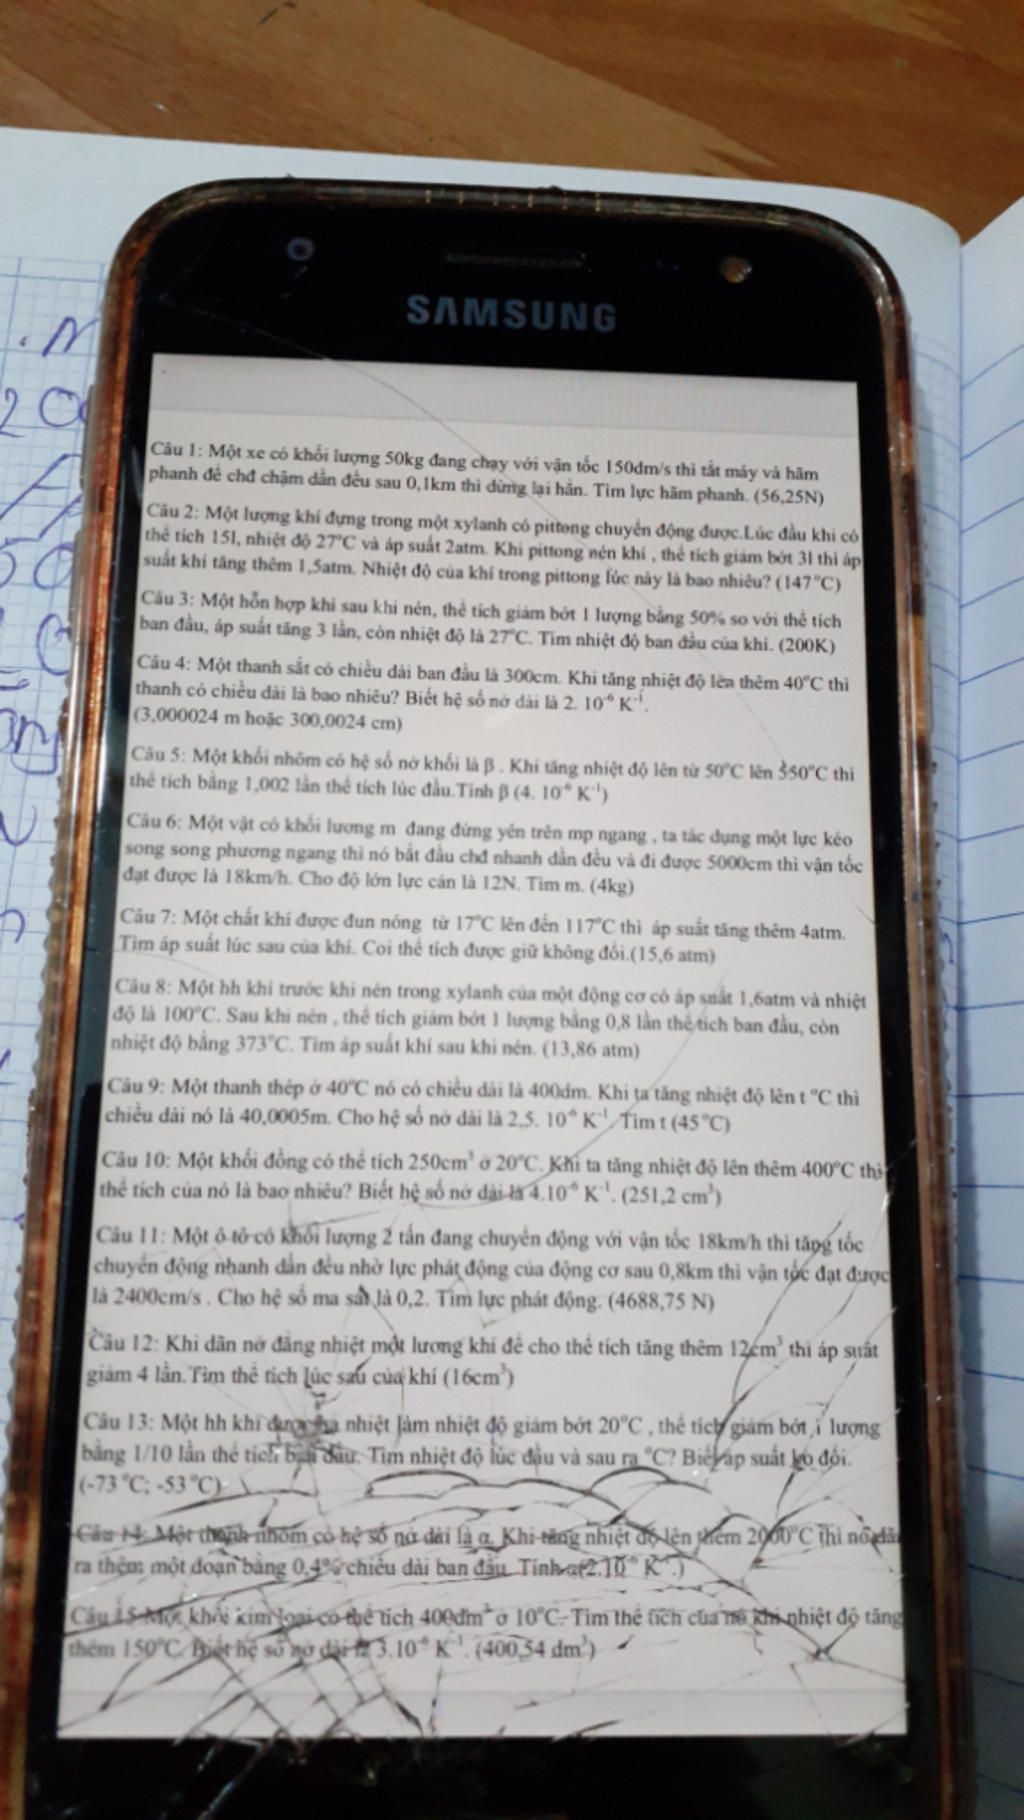 SAMSUNG
Câu 1: Một xe có khối lượng 50kg đang chạy với vận tốc 150dm/s thì tắt máy và hãm
phanh để chđ chậm dần đều sau 0,1km thì dừng lại hẳn. Tìm lực hãm phanh. (56,25N)
Câu 2: Một lượng khí đựng trong một xylanh có pittong chuyển động được.Lúc đầu khí có
thể tích 15l, nhiệt độ 27°C và áp suất 2atm. Khi pittong nén khí , thể tích giảm bớt 3l thì áp
suất khí tăng thêm 1,5atm. Nhiệt độ của khí trong pittong lúc này là bao nhiêu? (147°C)
Câu 3: Một hỗn hợp khí sau khi nén, thể tích giảm bớt 1 lượng bằng 50% so với thể tích
ban đầu, áp suất tăng 3 lần, còn nhiệt độ là 27°C. Tìm nhiệt độ ban đầu của khí. (200K)
Câu 4: Một thanh sắt có chiều dài ban đầu là 300cm. Khi tăng nhiệt độ lên thêm 40°C thì
thanh có chiều dài là bao nhiêu? Biết hệ số nở dài là 2. 10⁻⁶ K⁻¹.
(3,000024 m hoặc 300,0024 cm)
Câu 5: Một khối nhôm có hệ số nở khối là β . Khi tăng nhiệt độ lên từ 50°C lên 550°C thì
thể tích bằng 1,002 lần thể tích lúc đầu.Tính β (4. 10⁻⁶ K⁻¹)
Câu 6: Một vật có khối lương m đang đứng yên trên mp ngang , ta tác dụng một lực kéo
song song phương ngang thì nó bắt đầu chđ nhanh dần đều và đi được 5000cm thì vận tốc
đạt được là 18km/h. Cho độ lớn lực cản là 12N. Tìm m. (4kg)
Câu 7: Một chất khí được đun nóng từ 17°C lên đến 117°C thì áp suất tăng thêm 4atm.
Tìm áp suất lúc sau của khí. Coi thể tích được giữ không đổi.(15,6 atm)
Câu 8: Một hh khí trước khi nén trong xylanh của một động cơ có áp suất 1,6atm và nhiệt
độ là 100°C. Sau khi nén , thể tích giảm bớt 1 lượng bằng 0,8 lần thể tích ban đầu, còn
nhiệt độ bằng 373°C. Tìm áp suất khí sau khi nén. (13,86 atm)
Câu 9: Một thanh thép ở 40°C nó có chiều dài là 400dm. Khi ta tăng nhiệt độ lên t °C thì
chiều dài nó là 40,0005m. Cho hệ số nở dài là 2,5. 10⁻⁶ K⁻¹. Tìm t (45°C)
Câu 10: Một khối đồng có thể tích 250cm³ ở 20°C. Khi ta tăng nhiệt độ lên thêm 400°C thì
thể tích của nó là bao nhiêu? Biết hệ số nở dài là 4.10⁻⁶ K⁻¹. (251,2 cm³)
Câu 11: Một ô-tô có khối lượng 2 tấn đang chuyển động với vận tốc 18km/h thì tăng tốc
chuyển động nhanh dần đều nhờ lực phát động của động cơ sau 0,8km thì vận tốc đạt được
là 2400cm/s . Cho hệ số ma sát là 0,2. Tìm lực phát động. (4688,75 N)
Câu 12: Khi dãn nở đẳng nhiệt một lương khí để cho thể tích tăng thêm 12cm³ thì áp suất
giảm 4 lần.Tìm thể tích lúc sau của khí (16cm³)
Câu 13: Một hh khí được hạ nhiệt làm nhiệt độ giảm bớt 20°C , thể tích giảm bớt 1 lượng
bằng 1/10 lần thể tích ban đầu. Tìm nhiệt độ lúc đầu và sau ra °C? Biết áp suất ko đổi.
(-73 °C; -53°C)
Câu 14: Một thanh nhôm có hệ số nở dài là α. Khi tăng nhiệt độ lên thêm 2000°C thì nó dãn
ra thêm một đoạn bằng 0,4% chiều dài ban đầu. Tính α(2.10⁻⁶ K⁻¹.)
Câu 15 Một khối kim loại có thể tích 400dm³ ở 10°C. Tìm thể tích của nó khi nhiệt độ tăng
thêm 150°C. Biết hệ số nở dài là 3.10⁻⁶ K⁻¹. (400,54 dm³)